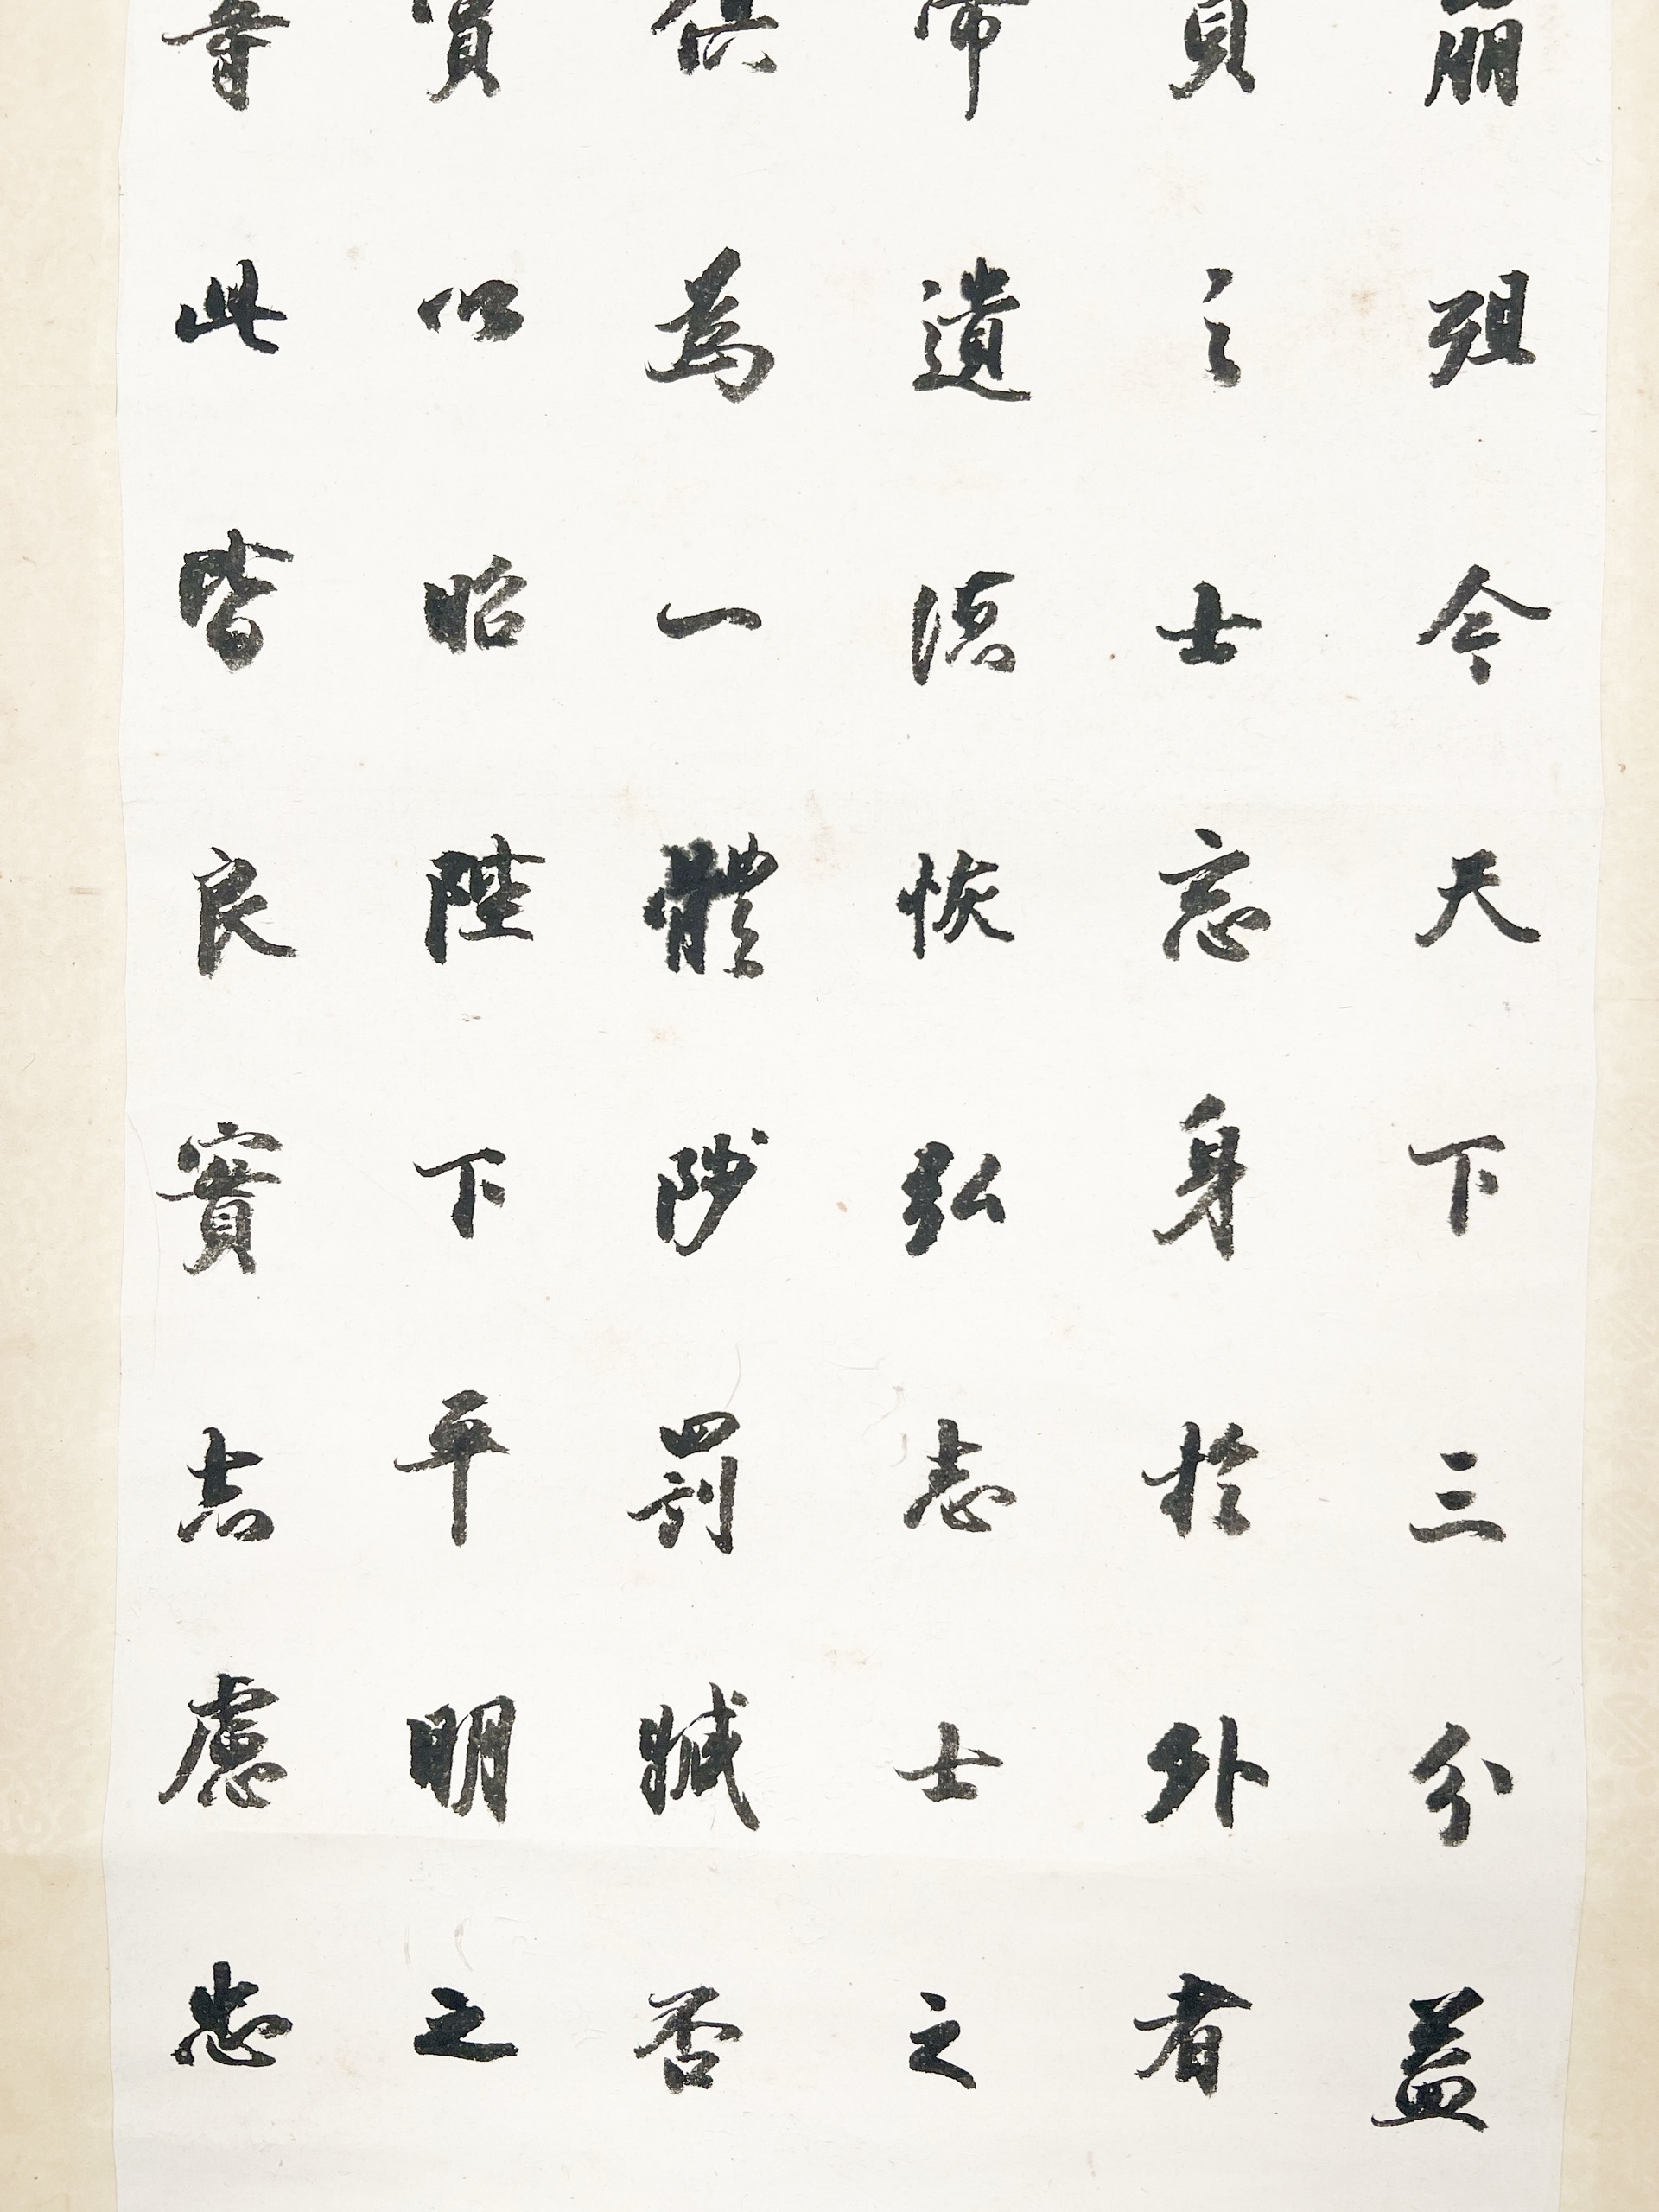 崩殂今天下三分益
之士忘身於外者
帝遺德恢弘志士之
為一體陟罰臧否
以昭陛下平明之
此皆良實志慮忠